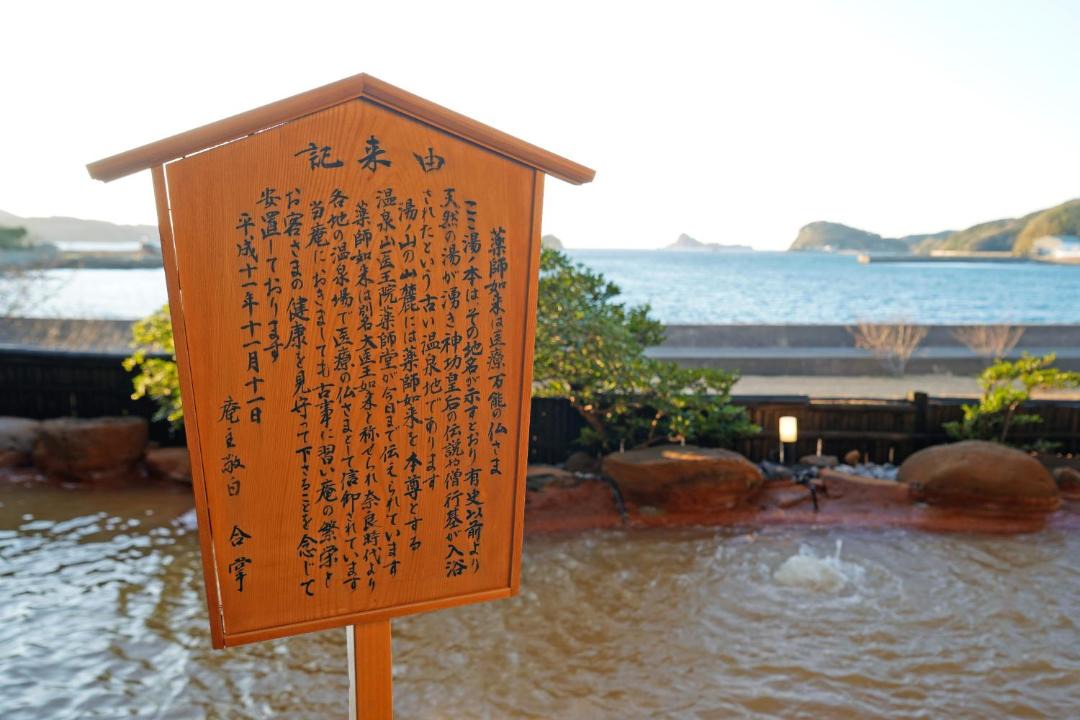 由来記
薬師如来は医療万能の仏さま
ここ湯ノ本は、その地名が示すとおり有史以前より
天然の湯が湧き神功皇后の伝説や僧行基が入浴
されたという古い温泉地であります
湯ノ山の山麓には薬師如来を本尊とする
温泉山医王院薬師堂が今日まで伝えられています
薬師如来は別名大医王如来と称せられ奈良時代より
各地の温泉場で医療の仏さまとして信仰されています
当庵におきましても古事に習い庵の繁栄と
お客さまの健康を見守って下さることを念じて
安置しております
平成十一年十一月十一日
庵主敬白 合掌